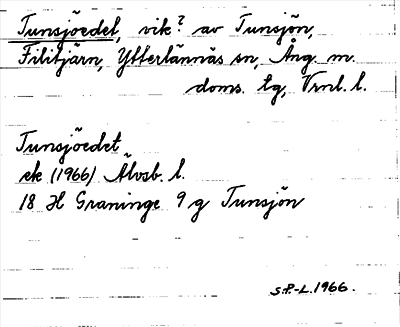 Tunsjöedet, vik? av Tunsjön,
Filitjärn, Ytterlännäs sn, Ång. m.
doms. tg, Vrnl. l.
Tunsjöedet
ek (1966) Älvsb. l.
18 H Graninge 9 g Tunsjön
S.P.-L. 1966.